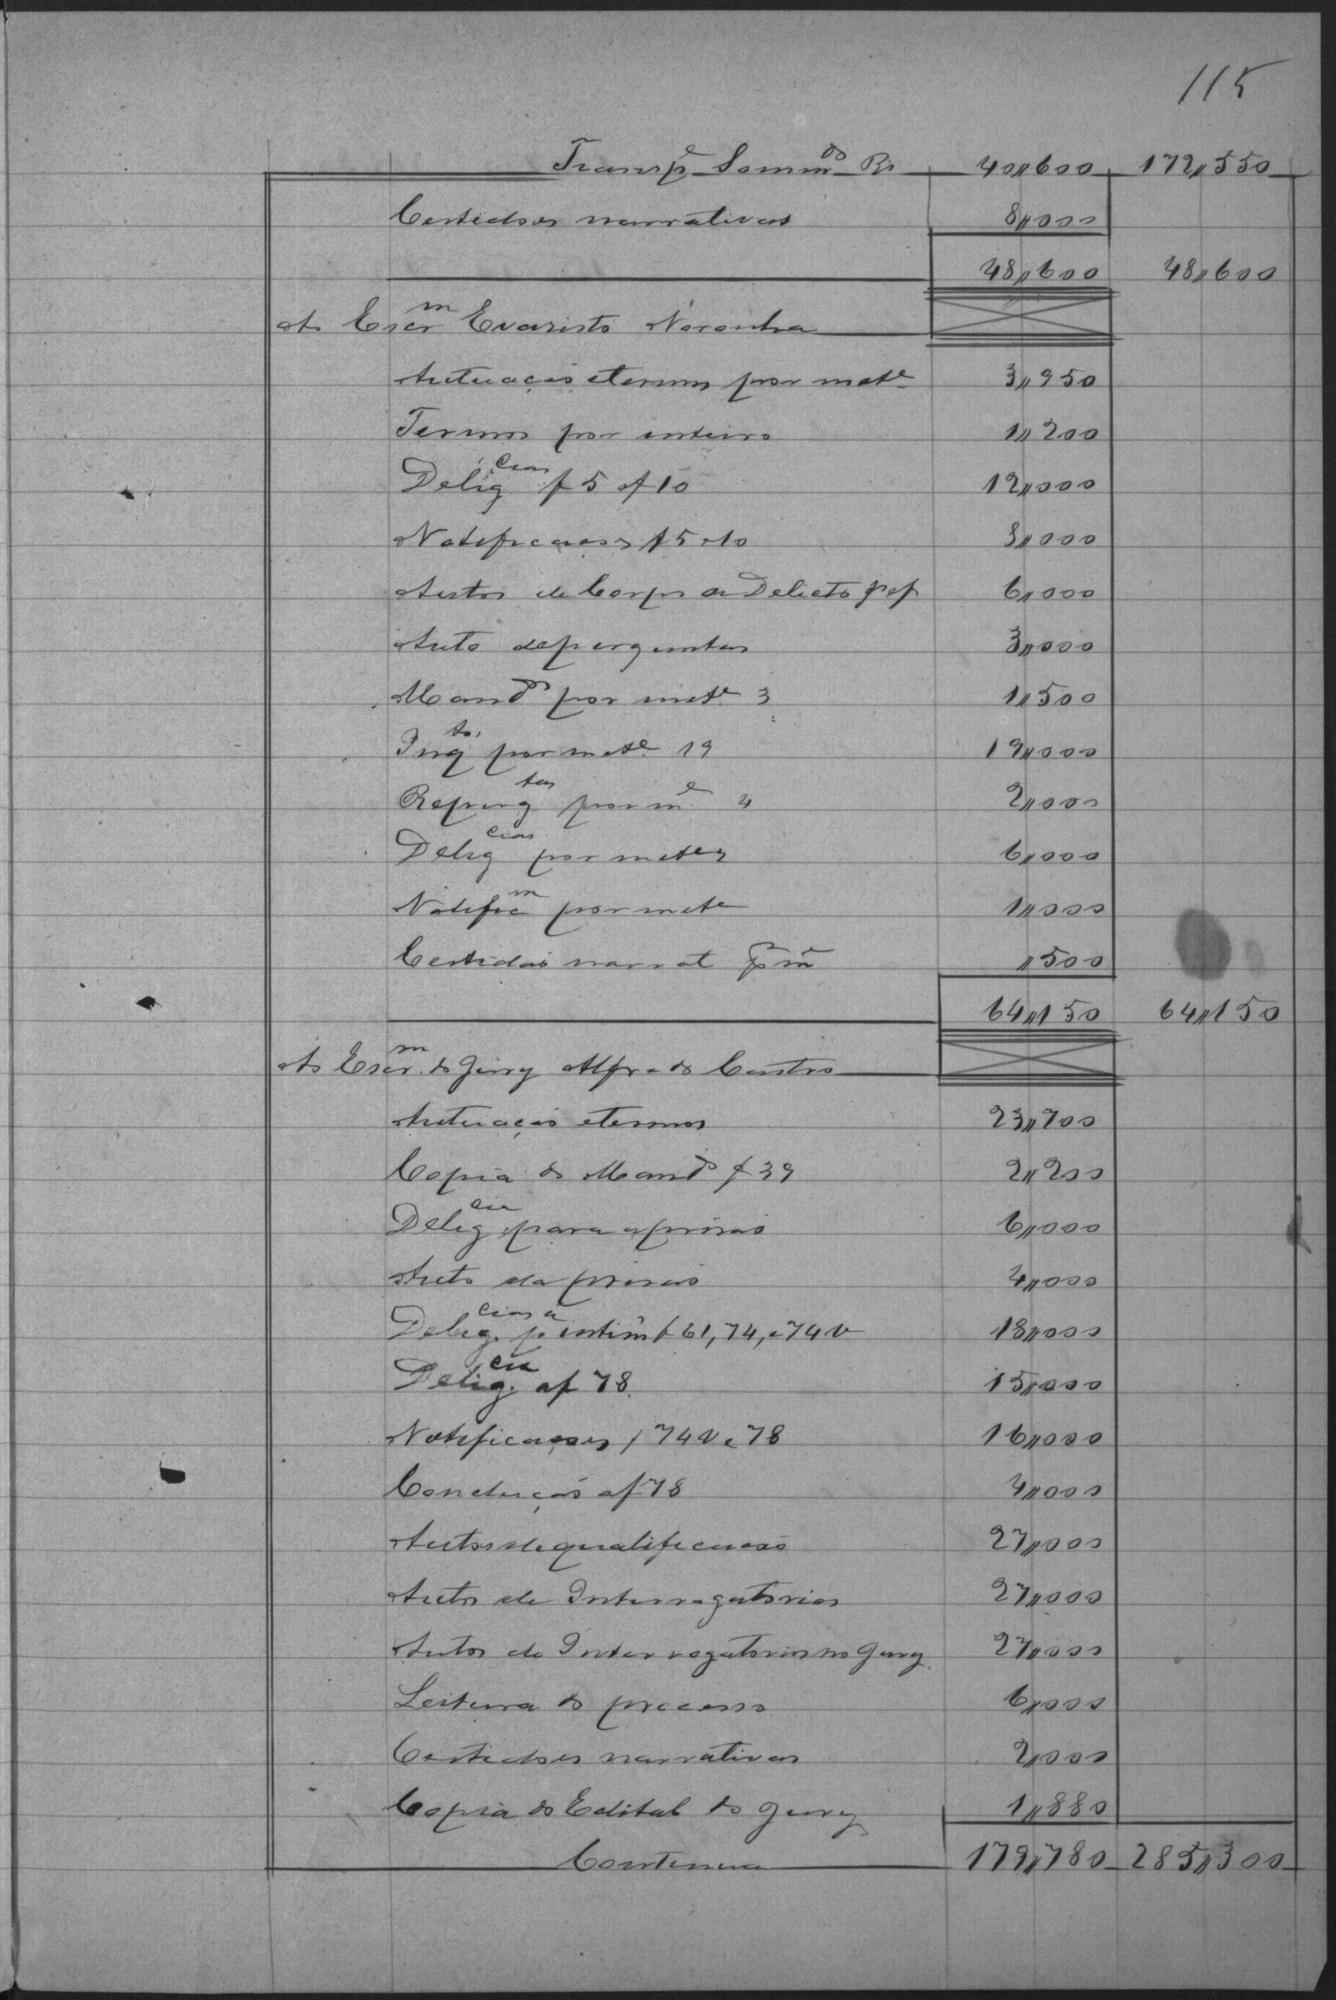 115
Transpe Sommdo Rs 40,,600 172,,550
Certidões narrativas 8,,000
48,,600 48,,600
Ao Escrm Evaristo Noronha
Autuação e termos por mete 3,,950
Termos por inteiro 1,,200
Deligcias f 5 e f 10 12,,000
Notificações f 5 e 10 8,,000
Autos de Corpo de Delicto 6,,000
Auto de perguntas 3,,000
Mando por mete 3 1,,500
Inqto por mete 19 19,,000
Repergtas por me 4 2,,000
Deligcias por mete 6,,000
Notificam por mete 1,,000
Certidão narrat por me ,,500
64,,150 64,,150
Ao Escrm do Jury Alfredo Castro
Autuação e termos 23,,700
Copia do Mando f 39 2,,200
Deligcia para a prisão 6,,000
Auto da prisão 4,,000
Deligcias pa intim f 61, 74, e 74 v 18,,000
Deligcia a f 78 15,,000
Notificações f 74 v e 78 16,,000
Condução a f 78 4,,000
Autos de qualificação 27,,000
Autos de Interrogatorios 27,,000
Autos de Interrogatorios no Jury 27,,000
Leitura do processo 6,,000
Certidões narrativas 2,,000
Copia do Edital do Jury 1,,880
Continua 179,,780 285,,300